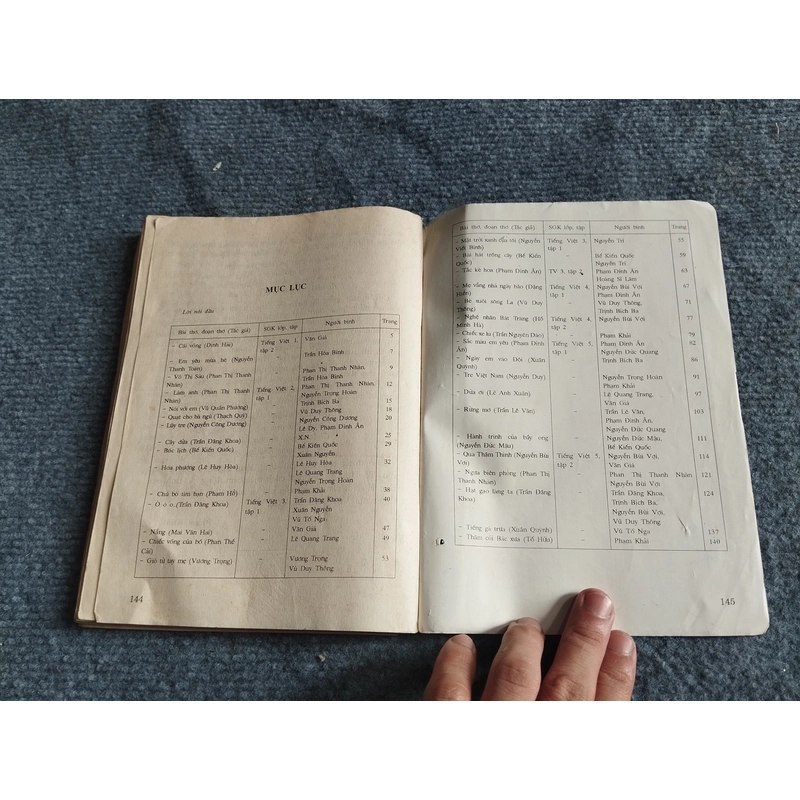 MỤC LỤC
Lời nói đầu
Bài thơ, đoạn thơ (Tác giả) SGK lớp, tập Người bình Trang
– Cái võng (Định Hải) Tiếng Việt 1, tập 2 Văn Giá 5
– Em yêu mùa hè (Nguyễn Thanh Toàn) – Trần Hòa Bình 7
– Võ Thị Sáu (Phan Thị Thanh Nhàn) – Phan Thị Thanh Nhàn, 9
Trần Hòa Bình
– Làm anh (Phan Thị Thanh Nhàn) Tiếng Việt 2, tập 1 Phan Thị Thanh Nhàn, 12
Nguyễn Trọng Hoàn
Trịnh Bích Ba 15
– Nói với em (Vũ Quần Phương) – Vũ Duy Thông 18
– Quạt cho bà ngủ (Thạch Quỳ) – Nguyễn Công Dương 20
– Lũy tre (Nguyễn Công Dương) – Lê Dy, Phạm Đình Ân
X.N. 25
– Cây dừa (Trần Đăng Khoa) – Bế Kiến Quốc 29
– Bóc lịch (Bế Kiến Quốc) – Xuân Nguyễn
– Hoa phượng (Lê Huy Hòa) – Lê Huy Hòa 32
Lê Quang Trang
Nguyễn Trọng Hoàn
– Chú bò tìm bạn (Phạm Hổ) – Phạm Khải 38
– Ò ó o. (Trần Đăng Khoa) Tiếng Việt 3, tập 1 Trần Đăng Khoa 40
Xuân Nguyễn
Vũ Tố Nga
– Nắng (Mai Văn Hai) – Văn Giá 47
– Chiếc võng của bố (Phan Thế Cải) – Lê Quang Trang 49
– Gió từ tay mẹ (Vương Trọng) – Vương Trọng 53
Vũ Duy Thông
144
Bài thơ, đoạn thơ (Tác giả) SGK lớp, tập Người bình Trang
– Mặt trời xanh của tôi (Nguyễn Viết Bình) Tiếng Việt 3, tập 2 Nguyễn Trí 55
– Bài hát trồng cây (Bế Kiến Quốc) – Bế Kiến Quốc 59
Nguyễn Trí
– Tắc kè hoa (Phạm Đình Ân) TV 3, tập 2 Phạm Đình Ân 63
Hoàng Sĩ Lâm
– Mẹ vắng nhà ngày bão (Đặng Hiển) Tiếng Việt 4, tập 1 Nguyễn Bùi Vợi, 67
Phạm Đình Ân
– Bè xuôi sông La (Vũ Duy Thông) – Vũ Duy Thông, 71
Trịnh Bích Ba
– Nghệ nhân Bát Tràng (Hồ Minh Hà) Tiếng Việt 4, tập 2 Nguyễn Bùi Vợi 77
– Chiếc xe lu (Trần Nguyên Đào) – Phạm Khải 79
– Sắc màu em yêu (Phạm Đình Ân) Tiếng Việt 5, tập 1 Phạm Đình Ân 82
Nguyễn Đức Quang
– Ngày em vào Đội (Xuân Quỳnh) – Trịnh Bích Ba 86
– Tre Việt Nam (Nguyễn Duy) – Nguyễn Trọng Hoàn 91
Phạm Khải
– Dừa ơi (Lê Anh Xuân) – Lê Quang Trang, 97
Văn Giá
– Rừng mơ (Trần Lê Văn) – Trần Lê Văn, 103
Phạm Đình Ân,
Nguyễn Đức Quang
– Hành trình của bầy ong (Nguyễn Đức Mậu) – Nguyễn Đức Mậu, 111
Bế Kiến Quốc
– Qua Thậm Thình (Nguyễn Bùi Vợi) Tiếng Việt 5, tập 2 Nguyễn Bùi Vợi, 114
Văn Giá
– Ngựa biên phòng (Phan Thị Thanh Nhàn) – Phan Thị Thanh Nhàn 121
Nguyễn Bùi Vợi,
– Hạt gạo làng ta (Trần Đăng Khoa) – Trần Đăng Khoa, 124
Trịnh Bích Ba,
Nguyễn Bùi Vợi,
Vũ Duy Thông
– Tiếng gà trưa (Xuân Quỳnh) – Vũ Tố Nga 137
– Thăm cõi Bác xưa (Tố Hữu) – Phạm Khải 140
145